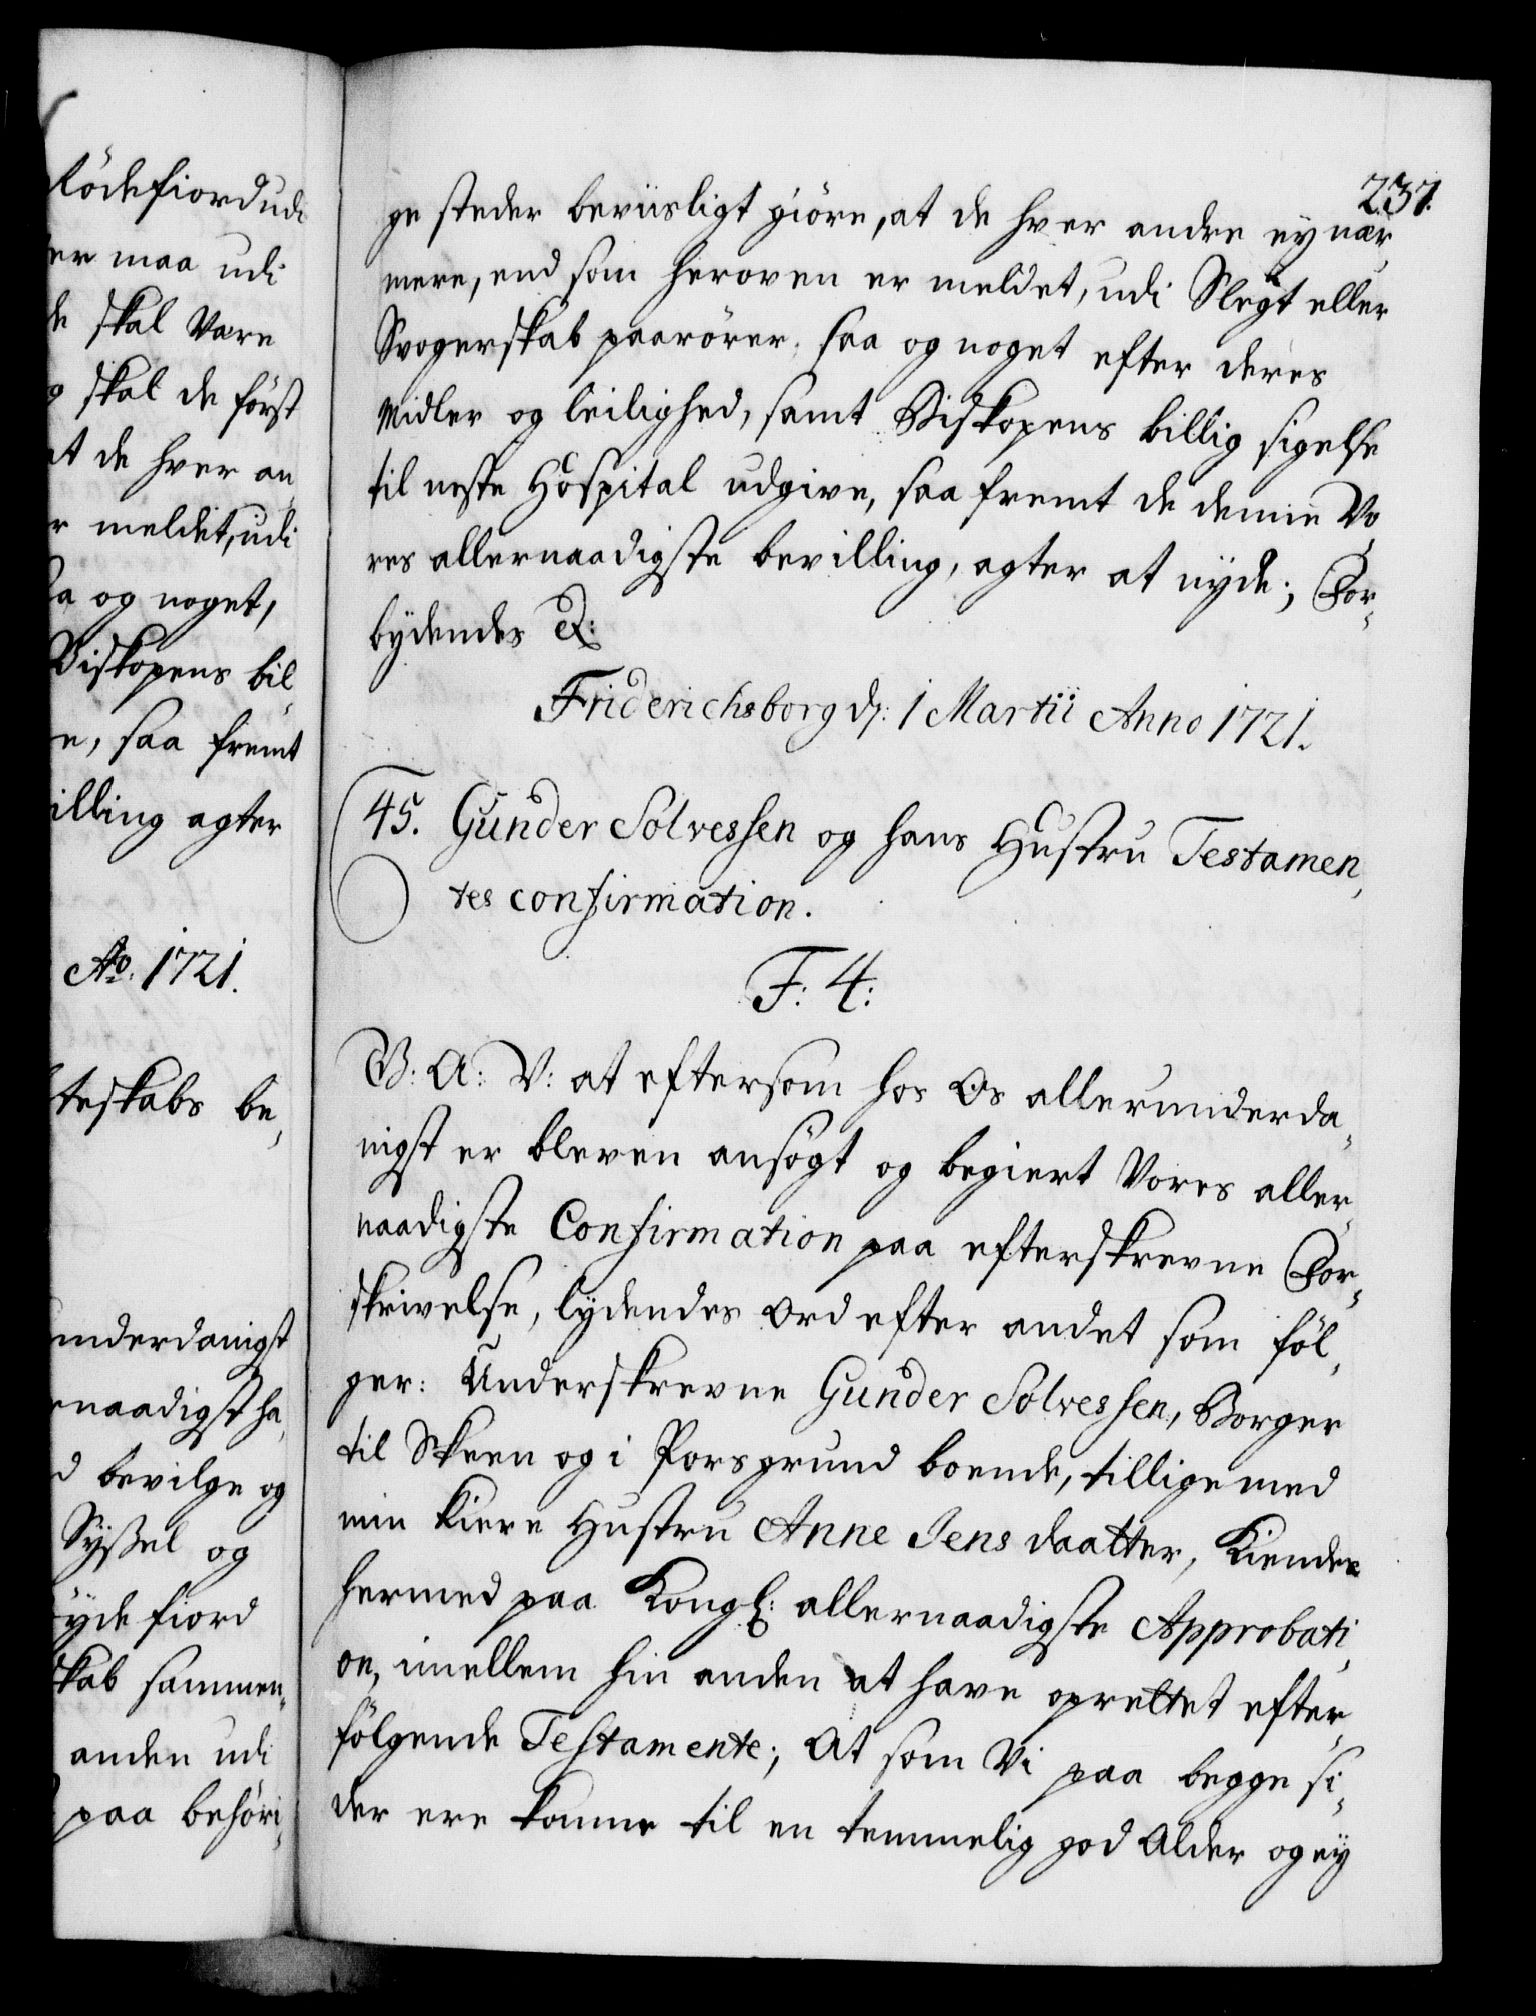 Rödefiord udi
er maa udi
de skal være
g skal de först
at de hver an„
r meldet, udi
saa og noget,
Biskopens bil„
e, saa fremt
illing agter
Ao. 1721.
teskabs be„
underdanigst
naadigst ha„
d bevilge og
Syssel og
yde fiord
skab sammen„
anden udi
paa behöri„
237.
ge steder beviisligt giöre, at de hver andre ey nær„
mere, end som heroven er meldet, udi Slegt eller
Svogerskab paarörer, saa og noget efter deres
Midler og leilighed, samt Biskopens billig sigelse
til neste Hospital udgive, saa fremt de denne Vo„
res allernaadigste bevilling, agter at nyde; For„
bydendes &:
Friderichsborg d: 1 Martii Anno 1721.
45. Gunder Solvessen og hans Hustru Testamen„
tes confirmation.
F: 4:
V: A: V: at eftersom hos Os allerunderda„
nigst er bleven ansögt og begiert Vores aller„
naadigste Confirmation paa efterskrevne For„
skrivelse, lydendes Ord efter andet som föl„
ger: Underskrevne Gunder Solvessen, Borger
til Skeen og i Porsgrund boende, tillige med
min kiere Hustru Anne Jens daatter, Kiendes
hermed paa Kongl: allernaadigste Approbati„
on, imellem hin anden at have oprettet efter„
fölgende Testamente; At som Vi paa begge si„
der ere komne til en temmelig god Alder og ey